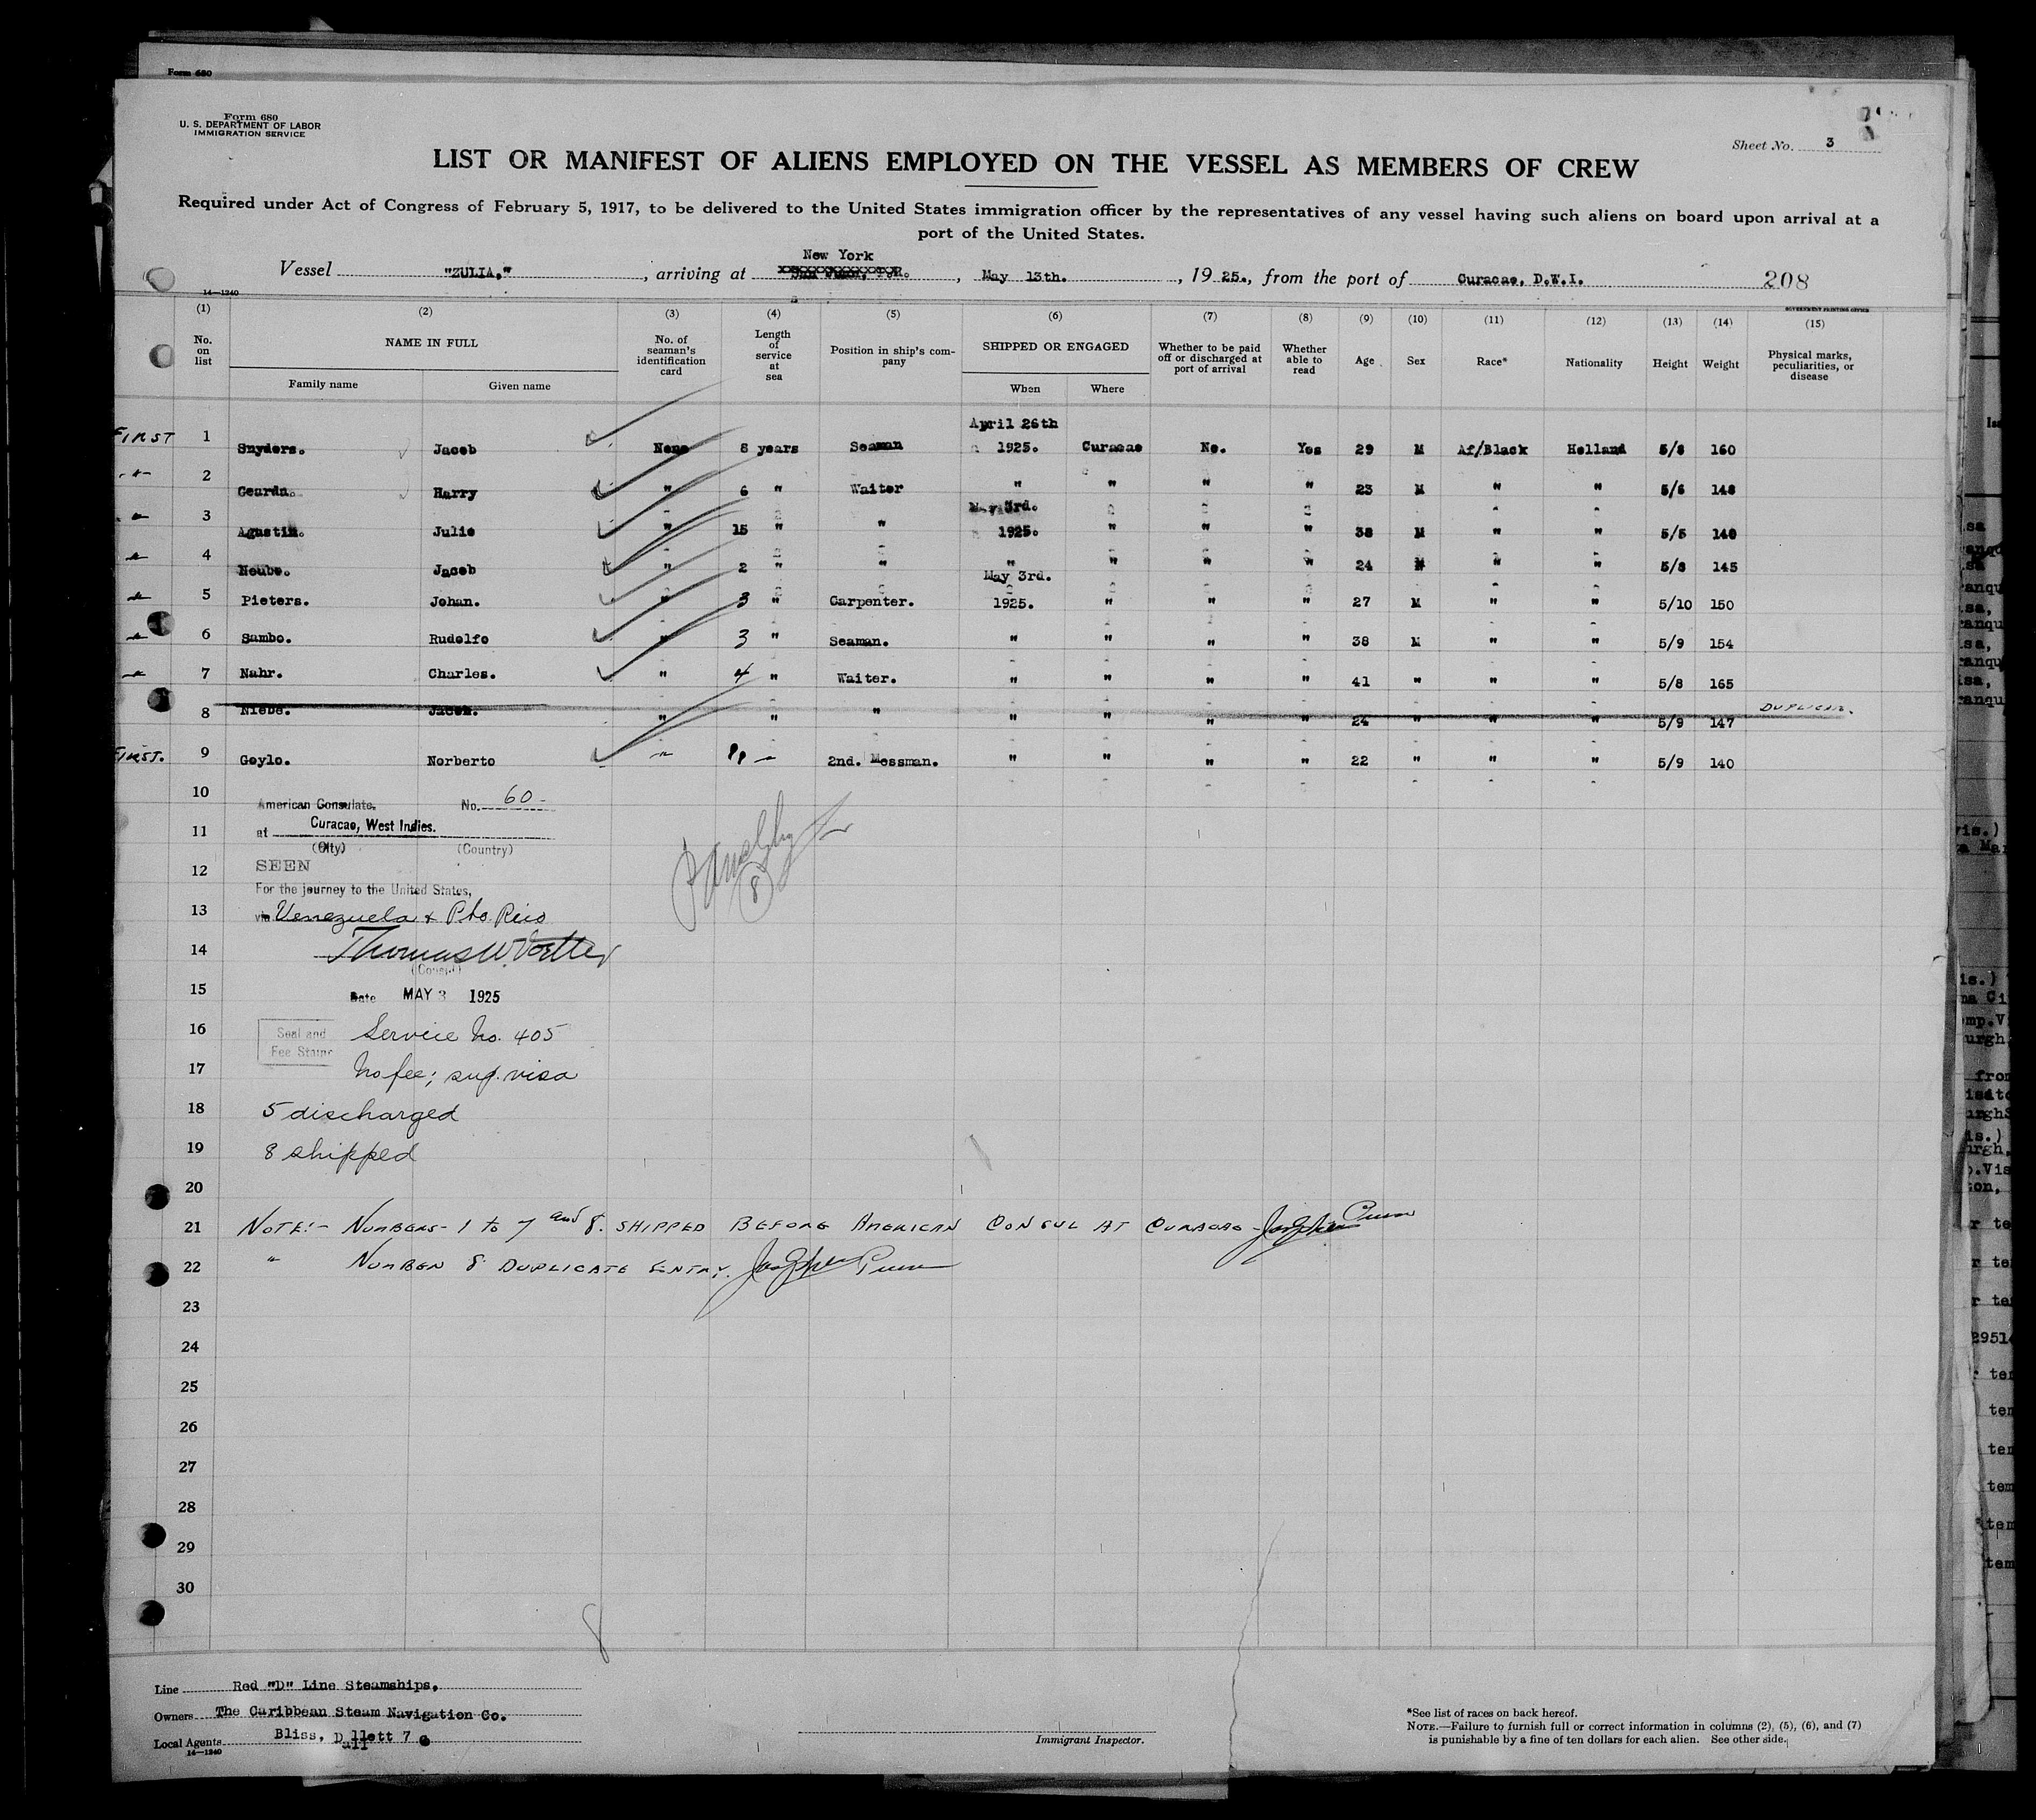 Form 680
Form 680
U. S. DEPARTMENT OF LABOR
IMMIGRATION SERVICE
Sheet No. 3
LIST OR MANIFEST OF ALIENS EMPLOYED ON THE VESSEL AS MEMBERS OF CREW
Required under Act of Congress of February 5, 1917, to be delivered to the United States immigration officer by the representatives of any vessel having such aliens on board upon arrival at a
port of the United States.
New York
Vessel "ZULIA," , arriving at , May 13th. , 1925., from the port of Curacao, D.W.I. 208
14—1240
GOVERNMENT PRINTING OFFICE
(1) (2) (3) (4) (5) (6) (7) (8) (9) (10) (11) (12) (13) (14) (15)
No. on list NAME IN FULL No. of seaman's identification card Length of service at sea Position in ship's company SHIPPED OR ENGAGED Whether to be paid off or discharged at port of arrival Whether able to read Age Sex Race* Nationality Height Weight Physical marks, peculiarities, or disease
Family name Given name When Where
April 26th
FIRST 1 Snyders. Jacob None 8 years Seaman 1925. Curacao No. Yes 29 M Af/Black Holland 5/8 160
2 Harry " 6 " Waiter " " " " 23 M " " 5/6 148
May 3rd.
3 Agustin. Julio " 15 " " 1925. " " " 38 M " " 5/5 140
4 Jacob " 2 " " " " " " 24 M " " 5/8 145
May 3rd.
5 Pieters. Johan. " 3 " Carpenter. 1925. " " " 27 M " " 5/10 150
6 Sambo. Rudolfo " 3 " Seaman. " " " " 38 M " " 5/9 154
7 Nahr. Charles. " 4 " Waiter. " " " " 41 " " " 5/8 165
8 Niebe. Jacob. " " " " " " " 24 " " " 5/9 147 DUPLICATE.
FIRST. 9 Goylo. Norberto " " 2nd. Messman. " " " " 22 " " " 5/9 140
10 American Consulate, No. 60-
11 at Curacao, West Indies.
(City) (Country)
12 SEEN
For the journey to the United States,
13 via Venezuela & Pto Rico
14 Thomas W.
(Consul)
15 Date MAY 3 1925
16 Seal and Service No. 405
Fee Stamp
17 No fee; sup. visa
18 5 discharged
19 8 shipped
20
21 NOTE:- NUMBERS- 1 to 7 and 8. SHIPPED BEFORE AMERICAN CONSUL AT CURACAO-
22 " NUMBER 8 DUPLICATE ENTRY.
23
24
25
26
27
28
29
30
8
Line Red "D" Line Steamships,
Owners The Caribbean Steam Navigation Co.
Local Agents Bliss, D llett 7
all
14—1240
Immigrant Inspector.
*See list of races on back hereof.
NOTE.—Failure to furnish full or correct information in columns (2), (5), (6), and (7)
is punishable by a fine of ten dollars for each alien. See other side.